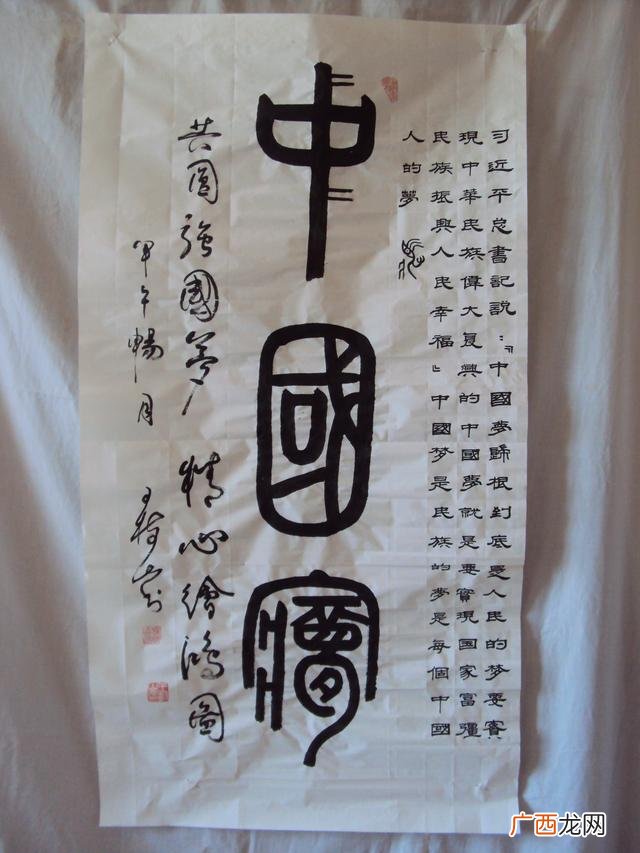 习近平总書記說：『中國夢歸根到底是人民的梦要實
現中華民族偉大复興的中國夢就是要實現国家富疆
民族振興人民幸福』中國梦是民族的夢是每個中國
人的夢
中國夢
共圓强國夢 精心繪鴻圖
甲午暢月
广西龙网